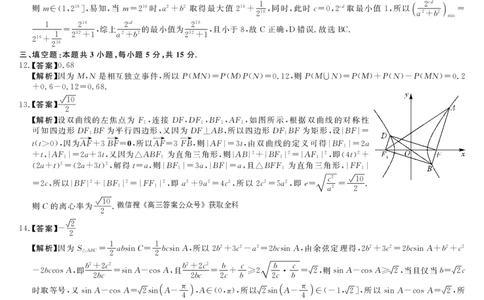 则 m∈(1,2¹⁶],易知,当 m=2¹⁶时,a²+b² 取得最大值 2¹⁶+1/2¹⁶,同时,此时 c=0,2^cd 取最小值 1,所以(2^cd/(a²+b²))min=
1/(2¹⁶+1/2¹⁶)=2¹⁶/(2³²+1),2^cd/(a²+b²)的最小值为2¹⁶/(2³²+1),且小于 8,故 C 正确,D 错误. 故选 BC.
三、填空题:本题共 3 小题,每小题 5 分,共 15 分.
12.【答案】0.68
【解析】因为 M,N 是相互独立事件,所以 P(MN)=P(M)P(N)=0.12,则 P(M⋃N)=P(M)+P(N)-P(MN)=0.2
+0.6-0.12=0.68.
13.【答案】√10/2
【解析】设双曲线的左焦点为 F₁,连接 DF,DF₁,BF₁,AF₁,如图所示,根据双曲线的对称性
可知四边形 DF₁BF 为平行四边形,又因为 DF⊥AB,所以四边形 DF₁BF 为矩形,设|BF|=
t(t>0),因为AF+3BF=0,所以AF=3FB,则|AF|=3t,由双曲线的定义可得|BF₁|=2a
+t,|AF₁|=2a+3t,又因为△ABF₁ 为直角三角形,则|AB|²+|BF₁|²=|AF₁|²,即(4t)²+
(2a+t)²=(2a+3t)²,解得 t=a,则|BF₁|=3a,|BF|=a,且△BFF₁ 为直角三角形,|FF₁|
=2c,所以|BF|²+|BF₁|²=|FF₁|²,即 a²+9a²=4c²,所以 2c²=5a²,即 e=√(c²/a²)=√10/2,
则 C 的离心率为√10/2. 微信搜《高三答案公众号》获取全科
y
A
D
F₁
O
F
x
B
14.【答案】-√2/2
【解析】因为 S△ABC=1/2absin C=1/2bcsin A,所以 2b²+3c²-a²=2bcsin A,由余弦定理得,2b²+3c²=2bcsin A+b²+c²
-2bccos A,即(b²+2c²)/2bc=sin A-cos A,且(b²+2c²)/2bc=b/2c+c/b≥2√(b/2c·c/b)=√2,则 sin A-cos A≥√2,当且仅当 b=√2c
时取等号,又 sin A-cos A=√2sin(A-π/4),A∈(0,π),所以√2sin(A-π/4)∈(-1,√2],所以 sin A-cos A=√2,所